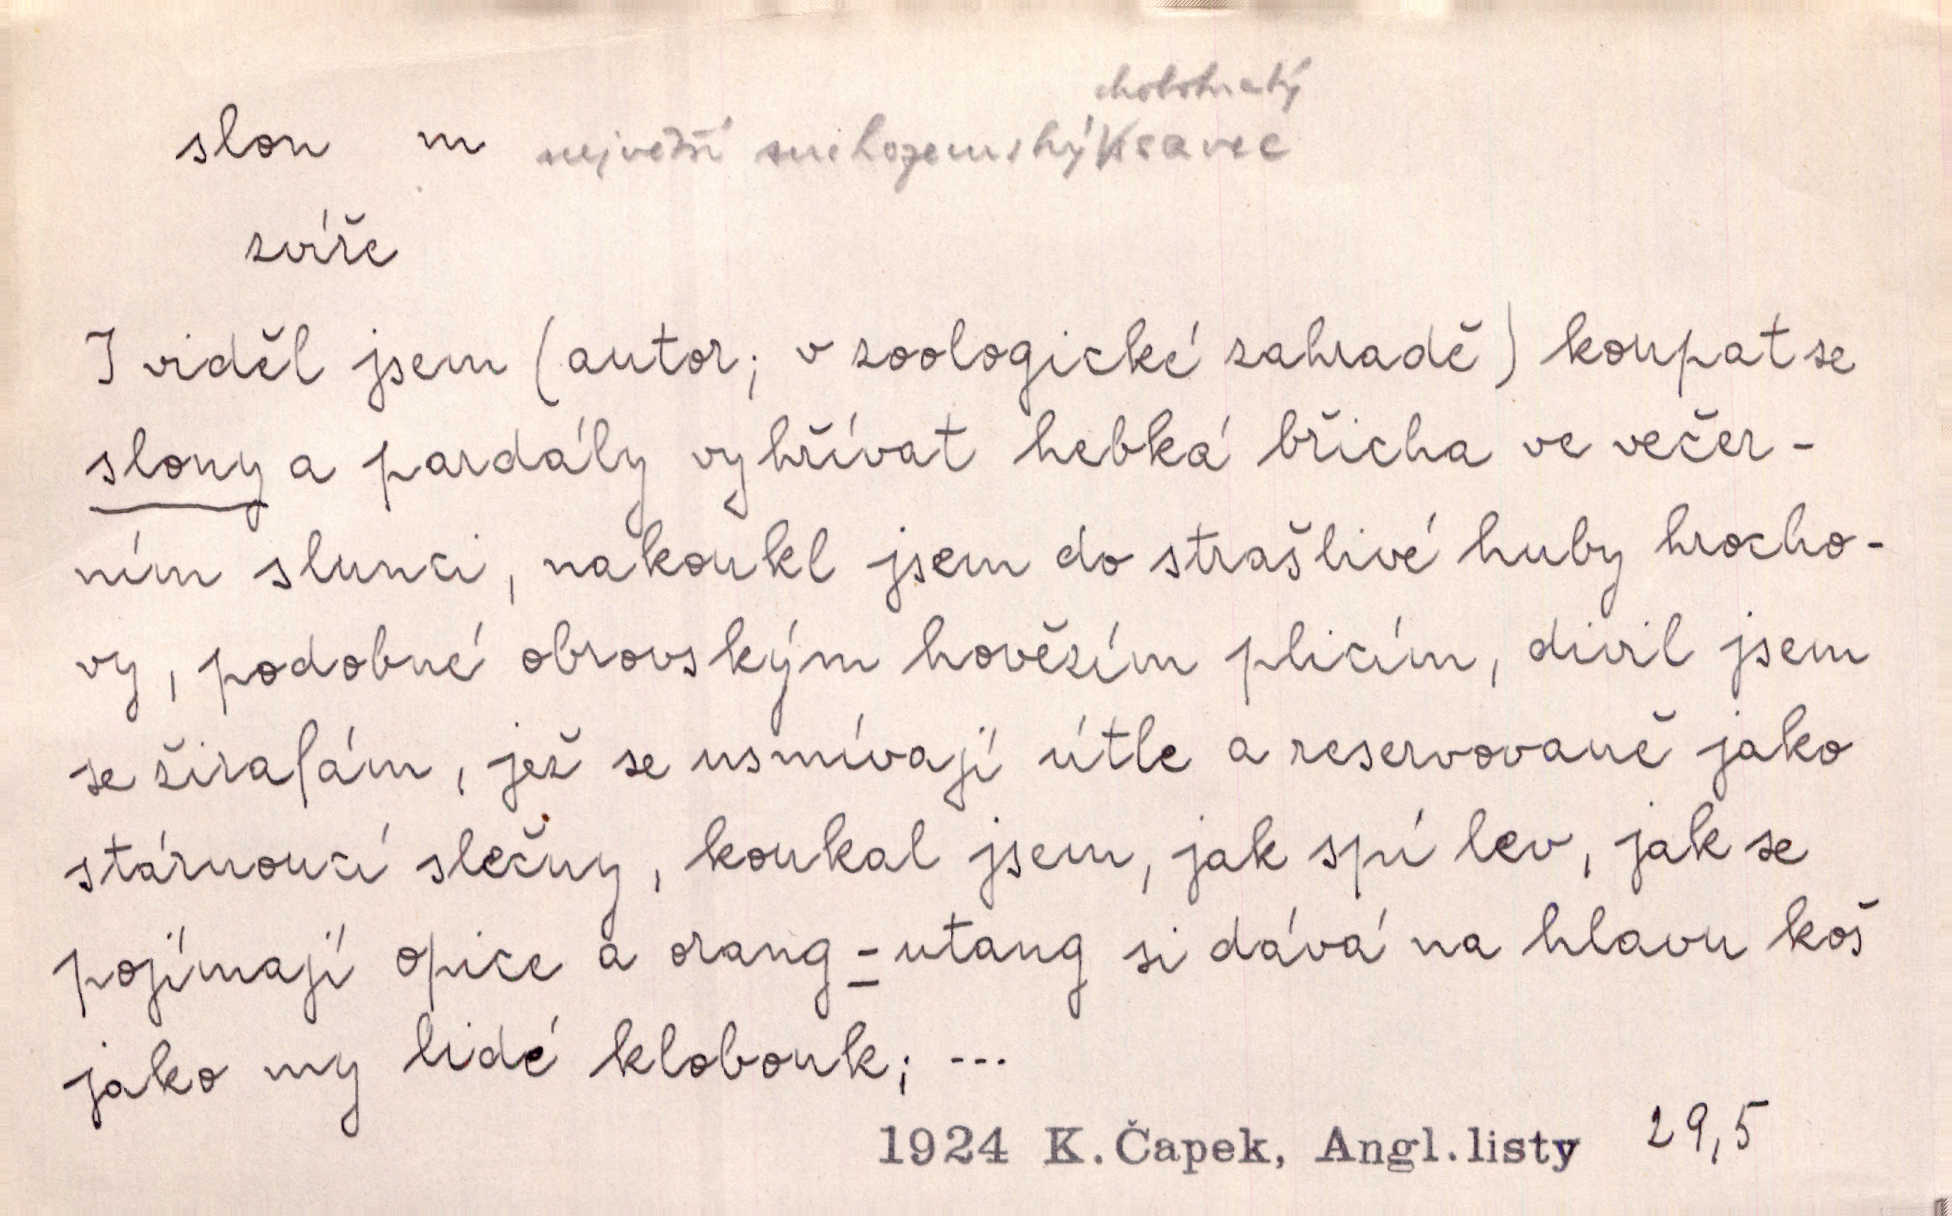 chobotnatý
slon m největší suchozemský savec
zvíře
I viděl jsem (autor; v zoologické zahradě) koupat se
slony a pardály vyhřívat hebká břicha ve večer-
ním slunci, nakoukl jsem do strašlivé huby hrocho-
vy, podobné obrovským hovězím plicím, divil jsem
se žirafám, jež se usmívají útle a reservovaně jako
stárnoucí slečny, koukal jsem, jak spí lev, jak se
pojímají opice a orang-utang si dává na hlavu koš
jako my lidé klobouk; ...
1924 K. Čapek, Angl. listy 29,5